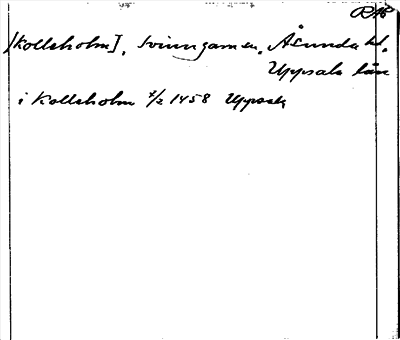 RAP
[Kolleholm], Svinngarnen, Åsunda hd.
Uppsala län
i Kolleholm 4/2 1458 Uppsala